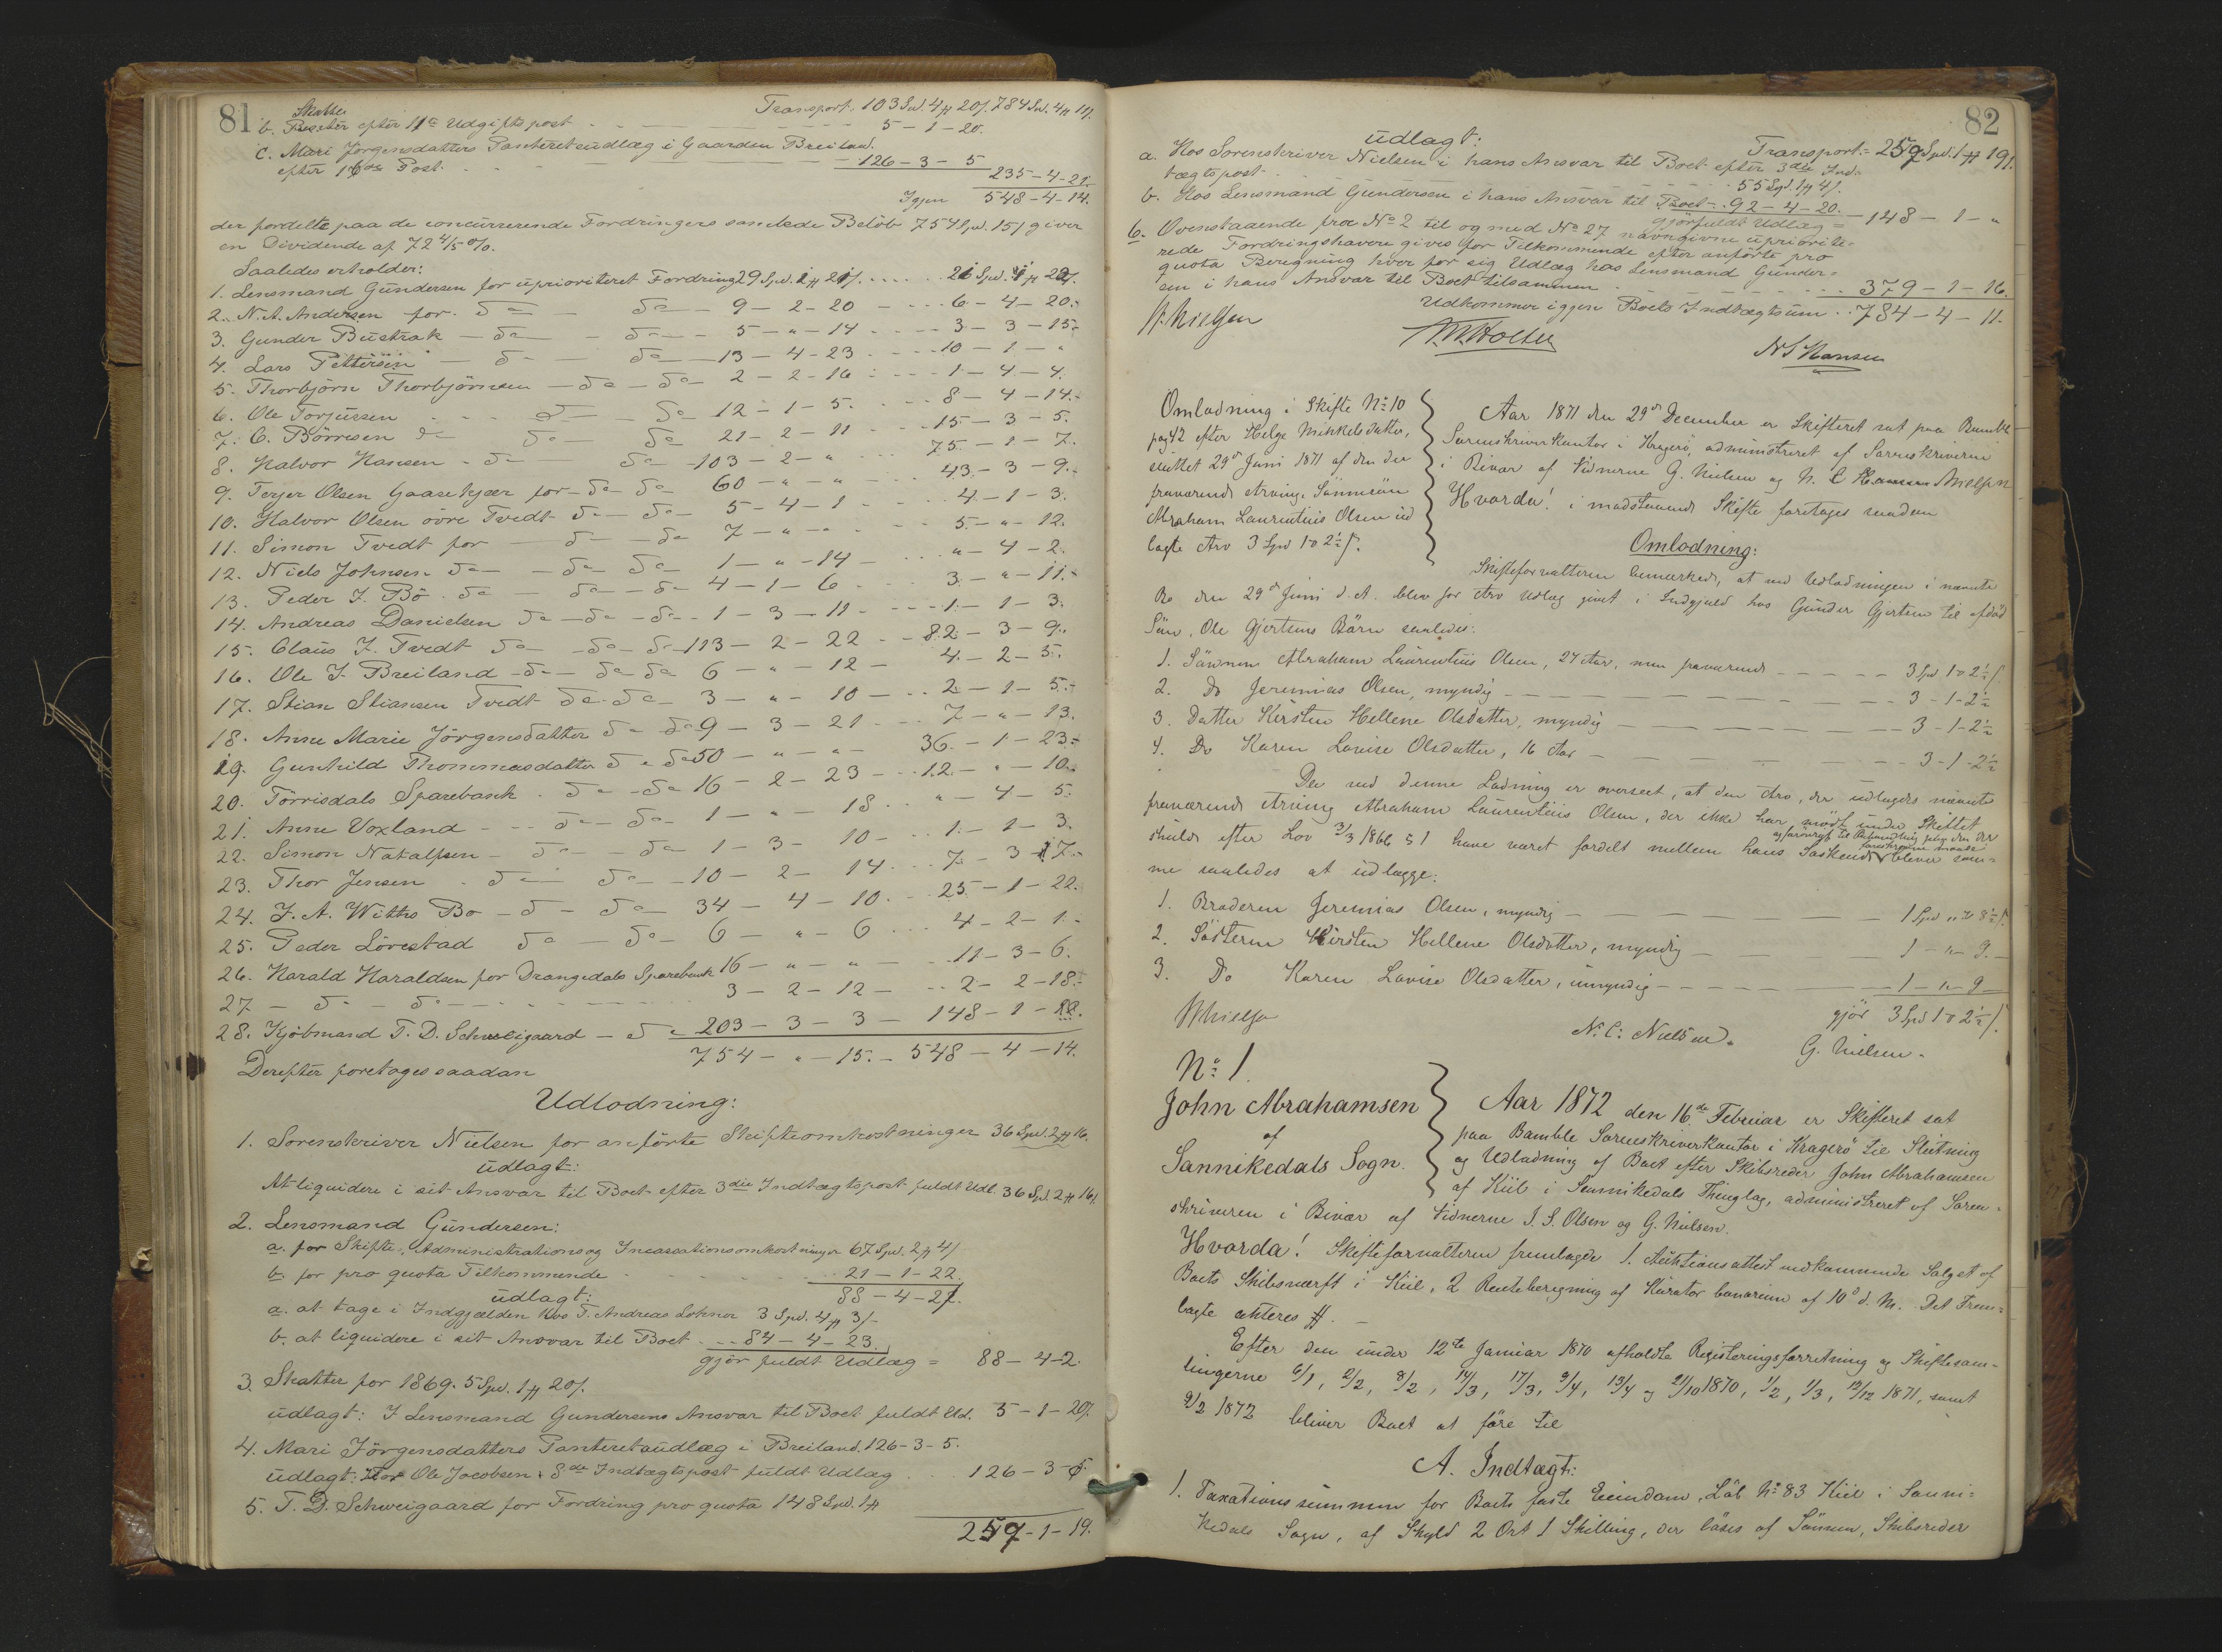 81
Transport. 103 Spd. 4 # 20 /. 784 Spd. 4 # 11 /.
b. Skatter efter 11te Udgiftspost 5 - 1 - 20.
c. Mari Jörgensdatters Panteretsudlæg i Gaarden Breiland.
efter 16de Post. 126 - 3 - 5
235 - 4 - 21.
Igjen 548 - 4 - 14.
der fordelte paa de concurrerende Fordringers samlede Belöb 754 Spd. 15 / giver
en Dividende af 72 4/5 %.
Saaledes erholder:
1. Lensmand Gundersen for uprioriteret Fordring 29 Spd. 1 # 21 /. 21 Spd. 1 # 22 /.
2. N. A. Andersen for do do 9 - 2 - 20 6 - 4 - 20.
3. Gunder Bustrak do do 5 - " - 14 3 - 3 - 15.
4. Lars Pettersen do do 13 - 4 - 23 10 - 1 - "
5. Thorbjörn Thorbjörnsen do do 2 - 2 - 16 1 - 4 - 4.
6. Ole Torjussen do do 12 - 1 - 5. 8 - 4 - 14.
7. C. Börresen do do do 21 - 2 - 11 15 - 3 - 5.
8. Halvor Hansen do do 103 - 2 - " 75 - 1 - 7.
9. Terjer Olsen Gaasekjær for do do 60 - " - " 43 - 3 - 9.
10. Halvor Olsen övre Tvedt do do 5 - 4 - 1 4 - 1 - 3.
11. Simon Tvedt for do do 7 - " - " 5 - " - 12.
12. Niels Johnsen do do do 1 - " - 14 " - 4 - 2.
13. Peder J. Bö do do do 4 - 1 - 6 3 - " - 11.
14. Andreas Danielsen do do do 1 - 3 - 11 1 - 1 - 3.
15. Claus J. Tvedt do do do 113 - 2 - 22 82 - 3 - 9.
16. Ole J. Breiland do do do 6 - " - 12 4 - 2 - 5.
17. Stian Stiansen Tvedt do do 3 - " - 10 2 - 1 - 5.
18. Anne Marie Jörgensdatter do do 9 - 3 - 21 7 - " - 13.
19. Gunhild Thommasdatter do do 50 - " - " 36 - 1 - 23.
20. Törrisdals Sparebank do do 16 - 2 - 23 12 - " - 10.
21. Anne Voxland do do 1 - " - 18 " - 4 - 5.
22. Simon Natalfsen do do 1 - 3 - 10 1 - 1 - 3.
23. Thor Jensen do do 10 - 2 - 14 7 - 3 - 17.
24. J. A. Withs Bo do do 34 - 4 - 10 25 - 1 - 22.
25. Peder Lövestad do do 6 - " - 6 4 - 2 - 1.
26. Harald Haraldsen for Drangedals Sparebank 16 - " - " 11 - 3 - 6.
27 do do 3 - 2 - 12 2 - 2 - 18.
28. Kjöbmand T. D. Schweigaard do 203 - 3 - 3 148 - 1 -
754 - " - 15. 548 - 4 - 14.
Derefter foretages saadan
Udlodning:
1. Sorenskriver Nielsen for anförte Skifteomkostninger 36 Spd. 2 # 16.
udlagt:
At liquidere i sit Ansvar til Boet efter 3die Indtægtspost fuldt Udl. 36 Spd. 2 # 16 /.
2. Lensmand Gundersen:
a. for Skifte-, Administrations og Incassationsomkostninger 67 Spd. 2 # 4 /
b. for pro quota Tilkommende 21 - 1 - 22.
88 - 4 - 2.
udlagt:
a. at tage i Indgjælden hos T. Andreas Lohner 3 Spd. 4 # 3 /
b. at liquidere i sit Ansvar til Boet 84 - 4 - 23.
gjör fuldt Udlæg = 88 - 4 - 2.
3. Skatter for 1869. 5 Spd. 1 # 20 /.
udlagt: I Lensmand Gundersens Ansvar til Boet fuldt Ud. 5 - 1 - 20 /.
4. Mari Jörgensdatters Panteretsudlæg i Breiland. 126 - 3 - 5.
udlagt: Hos Ole Jacobsen 8de Indtægtspost fuldt Udlæg 126 - 3 - 5.
5. T. D. Schweigaard for Fordring pro quota 148 Spd. 1 #
257 - 1 - 19.
82
Transport = 257 Spd. 1 # 19 /.
udlagt:
a. Hos Sorenskriver Nielsen i hans Ansvar til Boet efter 3die Ind-
tægtspost 55 Spd. 1 # 4 /.
b. Hos Lensmand Gundersen i hans Ansvar til Boet 92 - 4 - 20.
gjörfuldt Udlæg = 148 - 1 - "
6. Ovenstaaende fra No 2 til og med No 27 navngivne upriorite-
rede Fordringshavere gives for Tilkommende efter anförte pro
quota Beregning hver for sig Udlæg hos Lensmand Gunder-
sen i hans Ansvar til Boet tilsammen 379 - 1 - 16.
Udkommer igjen Boets Indtægtsum 784 - 4 - 11.
Nielsen
Holter
N S Hansen
Omlodning i Skifte No 10
pag 42 efter Helge Mikkelsdatter,
sluttet 29de Juni 1871 af den der
fraværende Arving, Sönnesön
Abraham Laurentius Olsen ud
lagte Arv 3 Spd 1 # 2 1/2 /.
Aar 1871 den 29de December er Skifteret sat paa Bamble
Sorenskriverkontor i Kragerö, administreret af Sorenskriveren
i Bivær af Vidnerne G. Nielsen og N. C. Hansen Nielsen
Hvorda! i modstaaende Skifte foretages saadan
Omlodning:
Skifteforvalteren bemærkede, at ved Udlodningen i nævnte
Bo den 29de Juni d. A. blev for Arv Udlæg givet i Indgjæld hos Gunder Gjertsen til afdöd
Sön, Ole Gjertsens Börn saaledes:
1. Sönnen Abraham Laurentius Olsen, 24 Aar, men fraværende 3 Spd 1 # 2 1/2 /
2. Do Jeremias Olsen, myndig 3 - 1 - 2 1/2
3. Datter Kirsten Hellene Olsdatter, myndig 3 - 1 - 2 1/2
4. Do Karen Lovise Olsdatter, 16 Aar 3 - 1 - 2 1/2
Da ved denne Lodning er overseet, at den Arv, der udlagdes nævnte
fraværende Arving Abraham Laurentius Olsen, der ikke har mödt under Skiftet
skulde efter Lov 3/3 1866 § 1 have været fordelt mellem hans Södskende bliver sam-
me saaledes at udlægge:
1. Broderen Jeremias Olsen, myndig 1 Spd " # 8 1/2 /.
2. Sösteren Kirsten Hellene Olsdatter, myndig 1 - " - 9.
3. Do Karen Lovise Olsdatter, umyndig 1 - " - 9
gjör 3 Spd 1 # 2 1/2 /.
Nielsen
N. C. Nielsen.
G. Nielsen.
No 1.
John Abrahamsen
af
Sannikedals Sogn.
Aar 1872 den 16de Februar er Skifteret sat
paa Bamble Sorenskriverkontor i Kragerö til Slutning
og Udlodning af Boet efter Skibsreder John Abrahamsen
af Kiil i Sannikedals Thinglag, administreret af Soren-
skriveren i Bivær af Vidnerne J. S. Olsen og G. Nielsen.
Hvorda! Skifteforvalteren fremlagde 1. Auktionsattest vedkommende Salget af
Boets Skibsværft i Kiil, 2 Renteberegning af Kurator bonorum af 10de d. M. Det Frem-
lagte akteres #.
Efter den under 12te Januar 1870 afholdte Registeringsforretning og Skiftesam-
lingerne 6/1, 2/2, 8/2, 14/3, 17/3, 9/4, 13/4 og 21/10 1870, 1/2, 1/3, 12/12 1871, samt
9/2 1872 bliver Boet at före til
A. Indtægt:
1. Taxationssummen for Boets faste Eiendom, Löb. No 83 Kiil i Sanni-
kedals Sogn, af Skyld 2 Ort 1 Skilling, der löses af Sönnen, Skibsreder